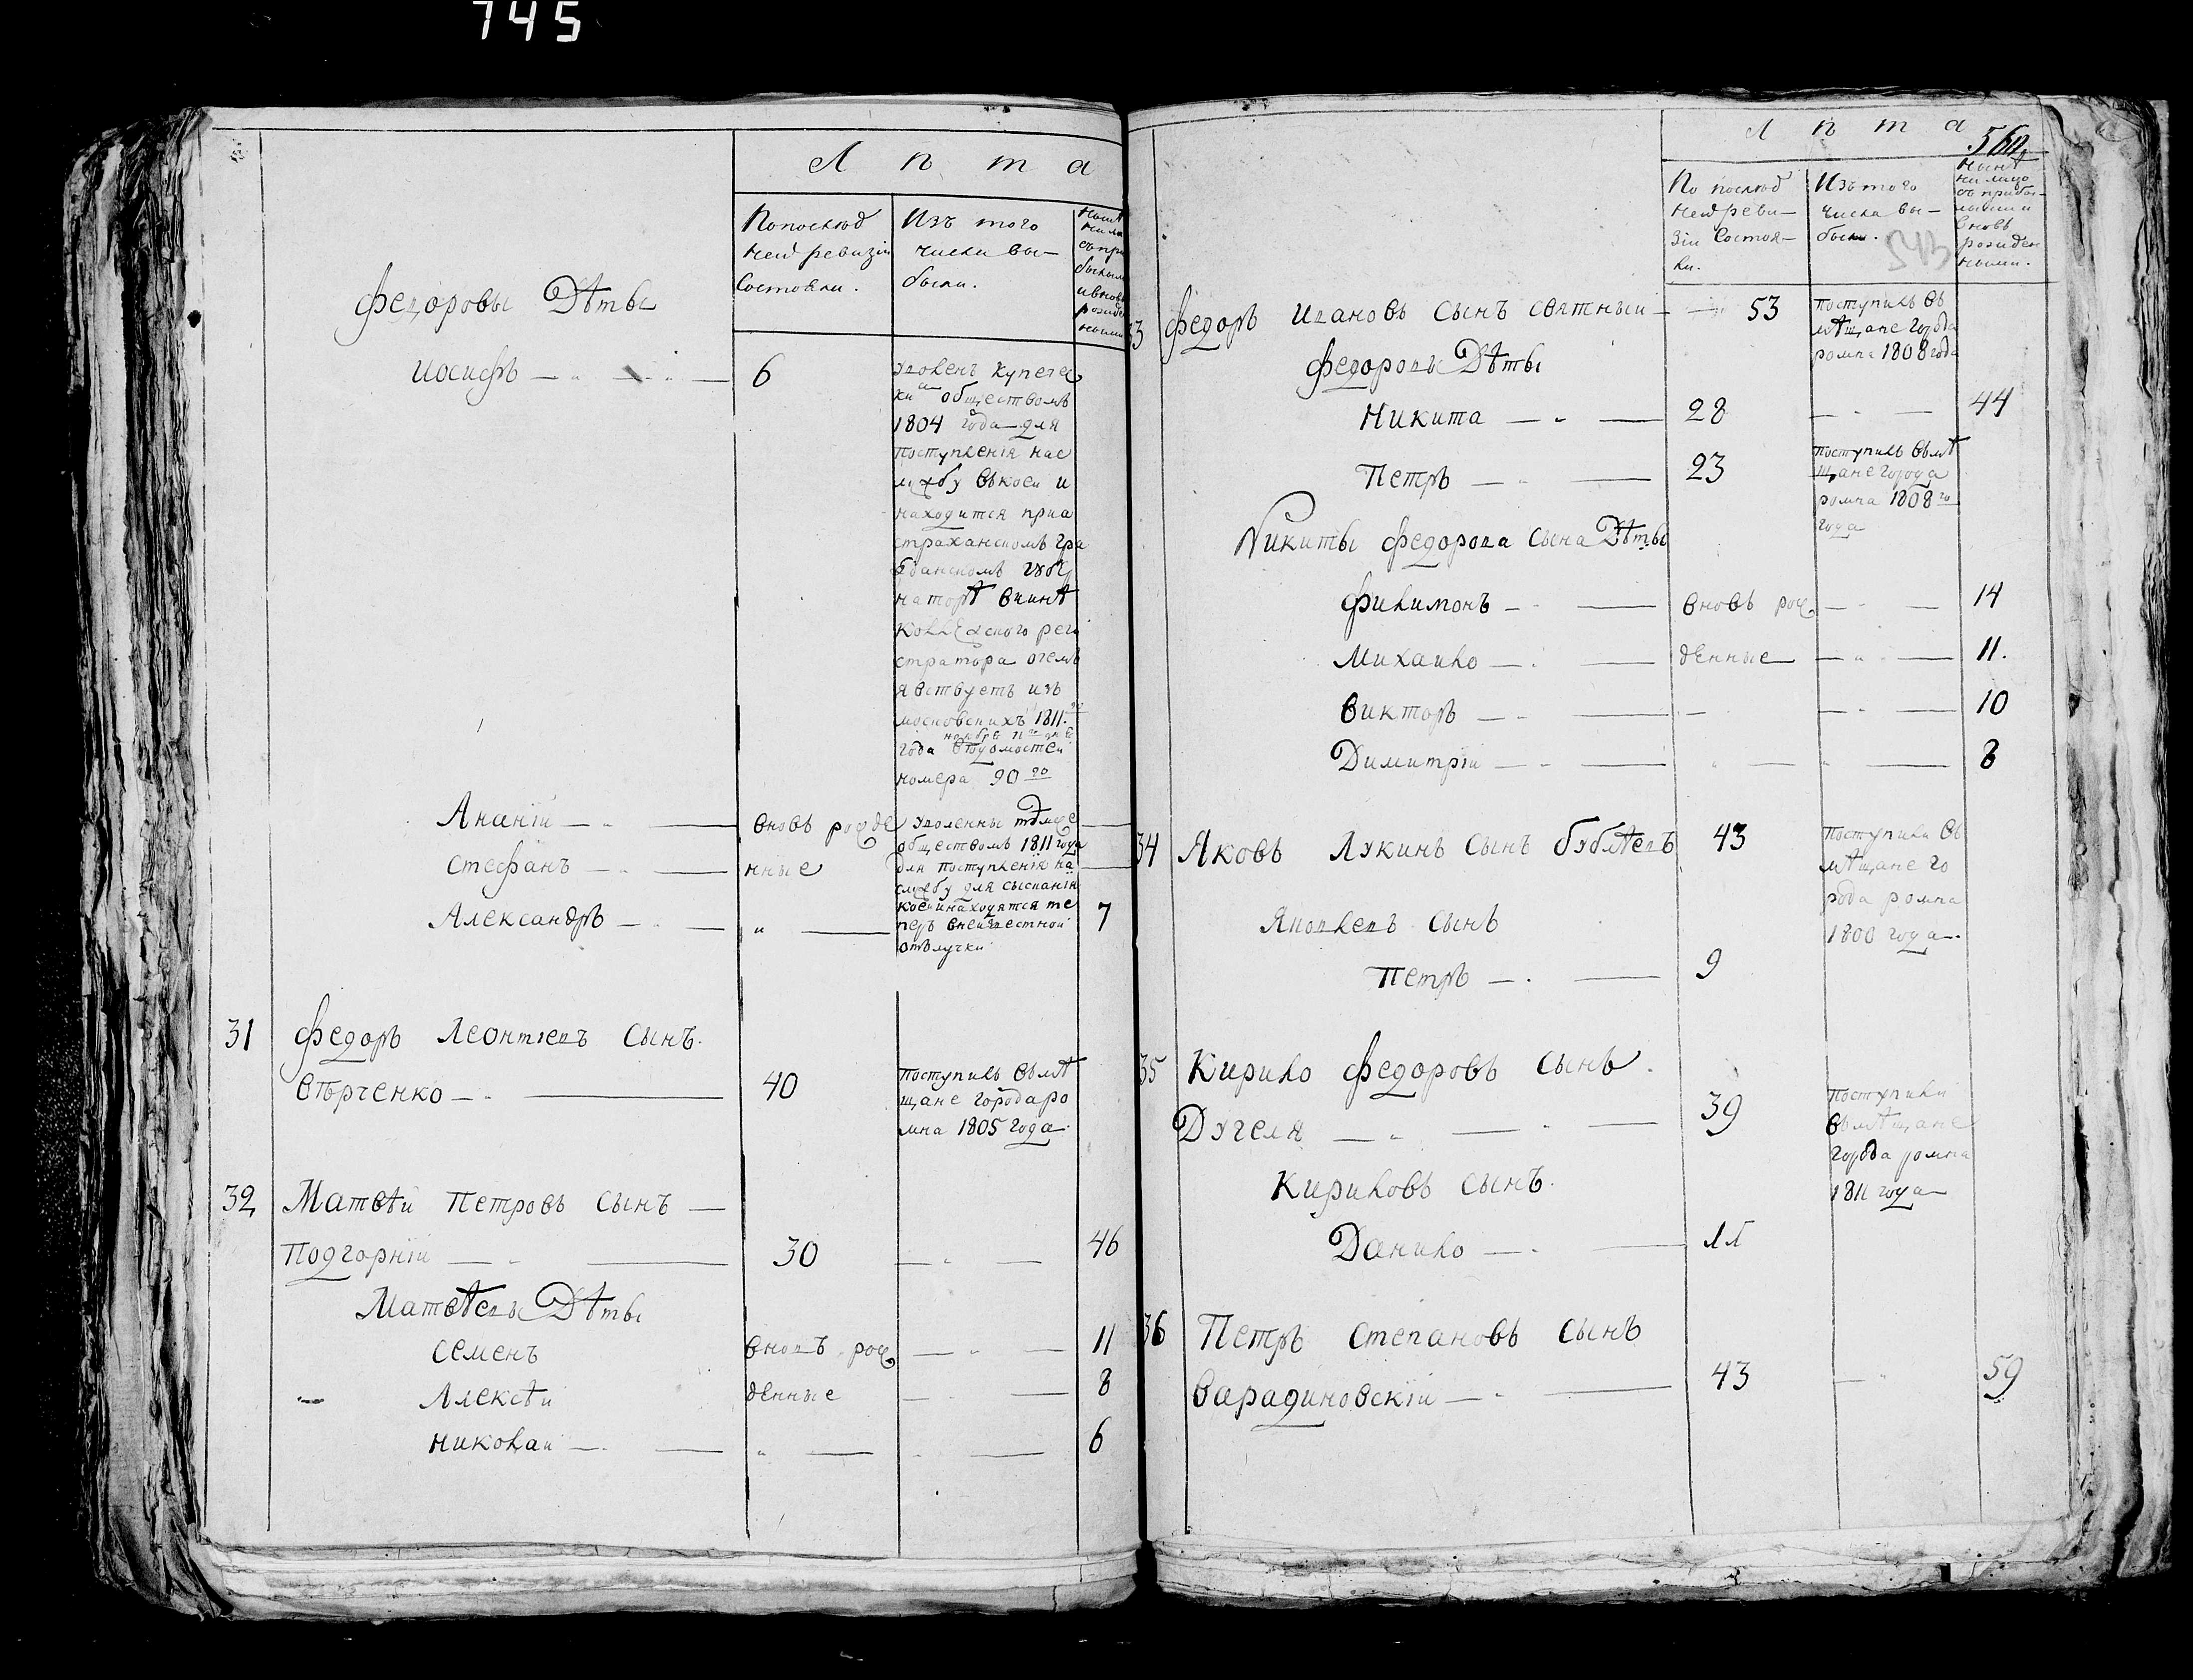 745
Лѣта
По послѣд
ней ревизіи
состояли.
Изъ того
числа вы-
были.
Федоровы Дѣты
Иосифъ — 6
уволенъ купечес
кимъ обществомъ
1804 года для
поступленія нас
лужбу въкоеи и
находится приа
страханскомъ гра
жданскомъ губер
наторѣ вчинѣ
Коллежского реги
стратора очемъ
явствуетъ изъ
московскихъ 1811го
ноября 11го дня
года вѣдомостеи
номера 90го
Ананіи — вновь рожде
Стефанъ — нные
Александръ — " — 7
уволенны тѣмже
обществомъ 1811 года
для поступленія на
службу для сысканія
коеи находятся те
перъ внеизвестной
отълучки
31 Федоръ Леонтіевъ сынъ.
Вѣрченко — 40
поступилъ вмѣ
щане города ро
мна 1805 года
32 Матвѣи Петровъ сынъ —
Подгорніи — 30 — 46
Матвѣевы Дѣты
Семенъ вновъ рож — 11
Алексѣи денные — 8
Николаи — " — 6
Лѣта
560
По послѣд
ней реви-
зіи состоя-
ли.
Изъ того
числа вы-
были.
543
Нынѣ
на лицо
съ прибы-
лыми и
вновь
рожден
ными.
Федоръ Ивановъ сынъ святныи — 53
поступилъ въ
мѣщане города
ромна 1808 года
Федоровы Дѣты
Никита — 28 — 44
Петръ — 23
поступилъ вмѣ
щане города
ромна 1808го
года
Никиты федорова сына Дѣты
Филимонъ — вновь рож — 14
Михаило — денные — 11.
Викторъ — 10
Димитріи — 8
34 Яковъ Лукинъ сынъ бублѣевъ 43
поступили въ
мѣщане го
рода ромна
1800 года
Яковлевъ сынъ
Петръ — 9
35 Кирило Федоровъ сынъ.
Дугеля — 39
поступили
вмѣщане
города ромна
1811 года
Кириловъ сынъ.
Данило — 11
36 Петръ Степановъ сынъ
Варадиновскіи — 43 — 59